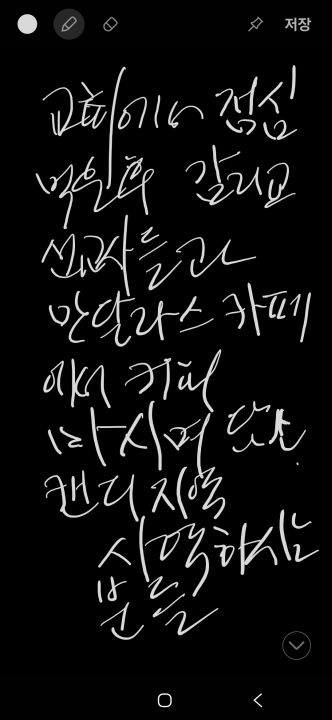 저장
교회에서 점심
먹은후 갈리교
선교사들과
만달라스 카페
에서 커피
마시며 당신
캔디 지목
시목하심
분들